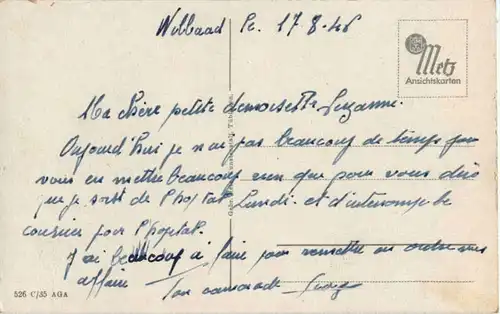 Wilbaad Le. 17-8-46
Metz
Ansichtskarten
Ma chère petite demoiselle Suzanne.
Aujourd'hui je n'ai pas beaucoup de temps pour
vous en mettre beaucoup rien que pour vous dire
que je sors de l'hopital Lundi. et d'interrompre le
courier pour l'hopital.
J'ai beaucoup à faire pour remettre en ordre mes
affaire
Ton camarade
526 C/35 AGA